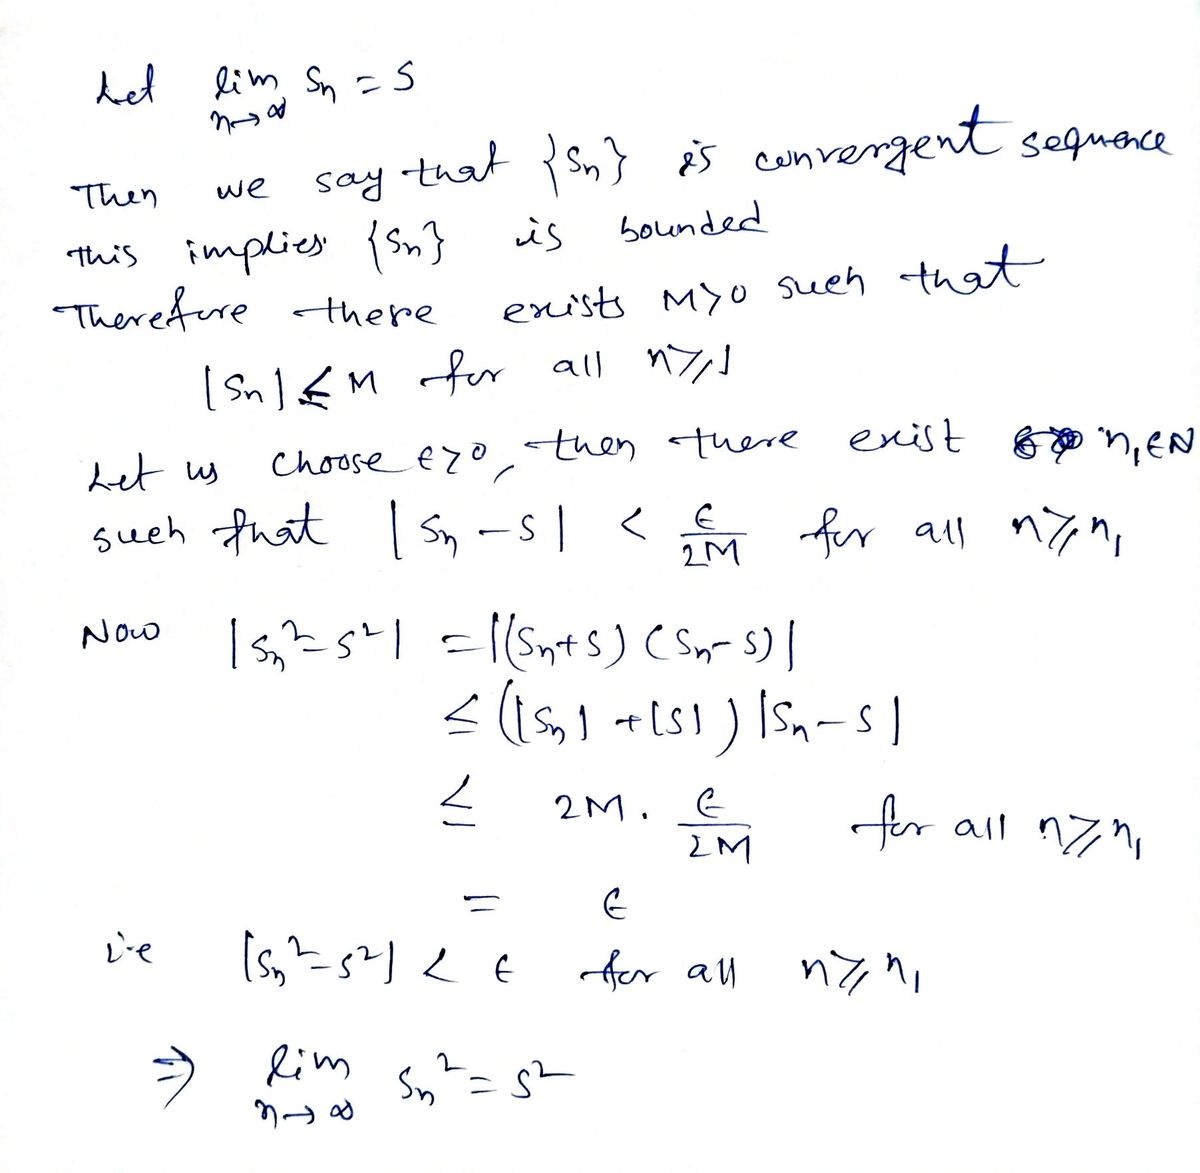 Let lim n→∞ Sn = S
Then we say that {Sn} is convergent sequence
this implies {Sn} is bounded
Therefore there exists M>0 such that
|Sn| ≤ M for all n≥1
Let us choose ϵ>0, then there exist n₁∈N
such that |Sn - S| < ϵ/2M for all n≥n₁
Now |Sn² - S²| = |(Sn+S)(Sn-S)|
≤ (|Sn| + |S|) |Sn - S|
≤ 2M . ϵ/2M for all n≥n₁
= ϵ
i.e |Sn² - S²| < ϵ for all n≥n₁
⇒ lim n→∞ Sn² = S²